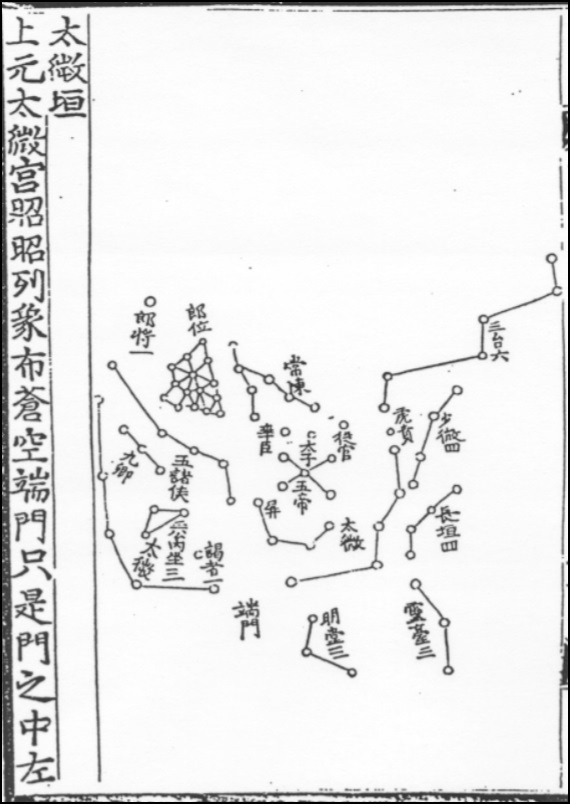 太微垣
上元太微宮昭昭列象布蒼空端門只是門之中左
三台六
少微四
長垣四
靈臺三
虎賁
從官
太子
五帝
幸臣
常陳
郎位
郎將一
太微
屏
明堂三
端門
謁者一
五諸侯
九卿
六內坐三
太微